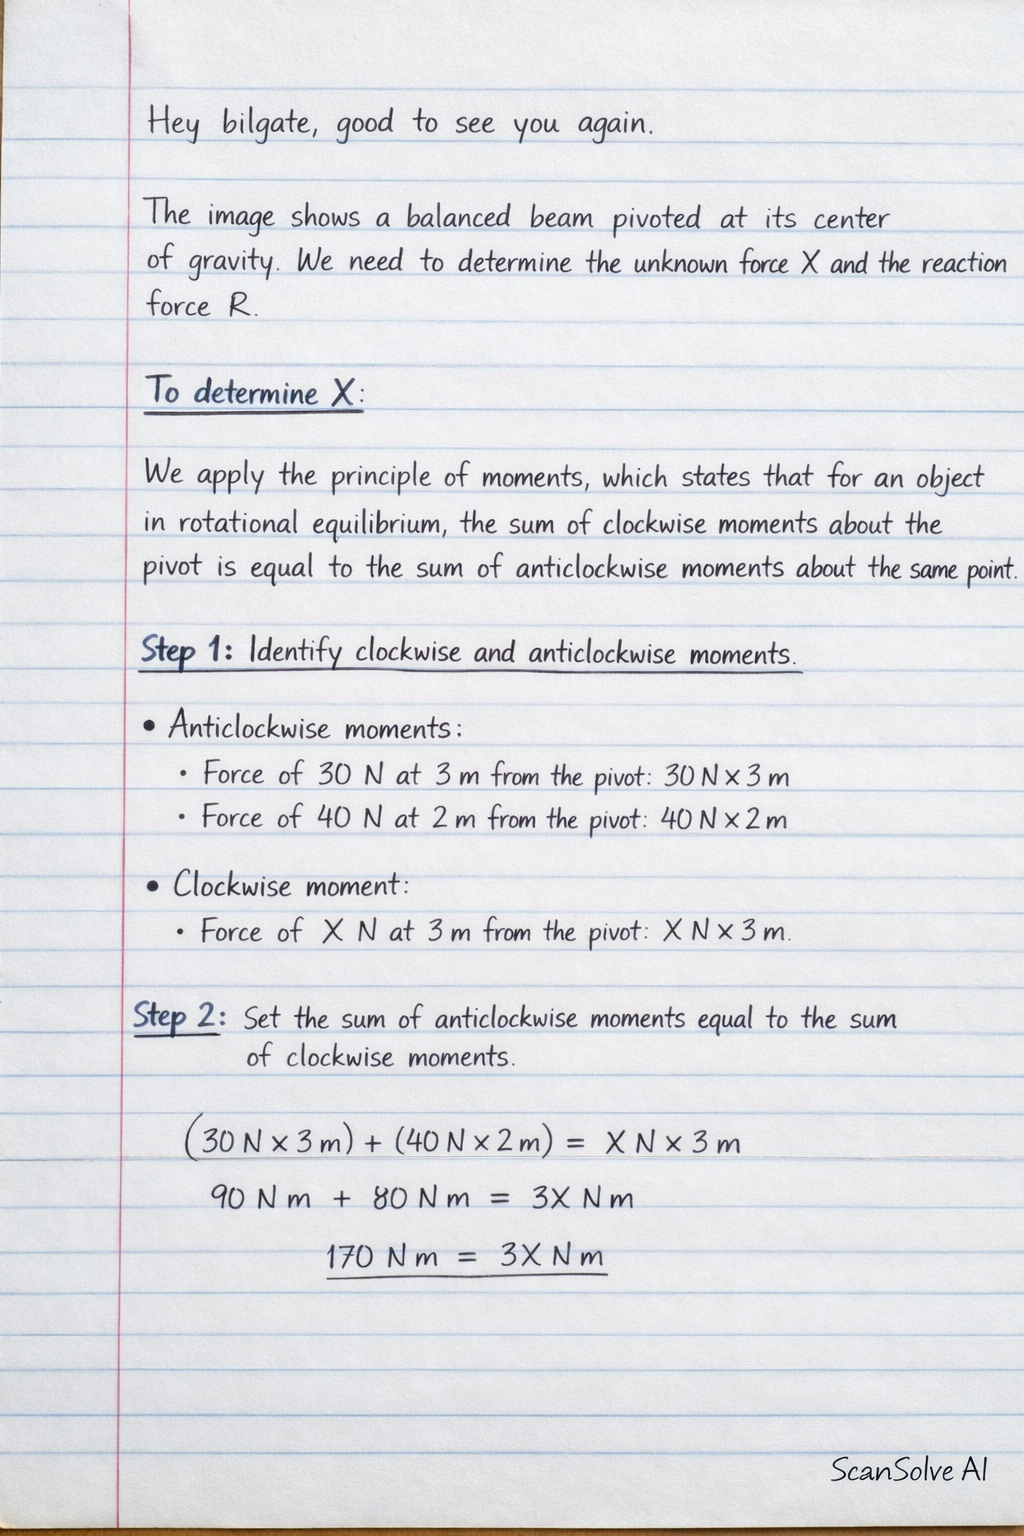 Hey bilgate, good to see you again.
The image shows a balanced beam pivoted at its center
of gravity. We need to determine the unknown force X and the reaction
force R.
To determine X:
We apply the principle of moments, which states that for an object
in rotational equilibrium, the sum of clockwise moments about the
pivot is equal to the sum of anticlockwise moments about the same point.
Step 1: Identify clockwise and anticlockwise moments.
• Anticlockwise moments:
• Force of 30 N at 3 m from the pivot: 30 N × 3 m
• Force of 40 N at 2 m from the pivot: 40 N × 2 m
• Clockwise moment:
• Force of X N at 3 m from the pivot: X N × 3 m.
Step 2: Set the sum of anticlockwise moments equal to the sum
of clockwise moments.
(30 N × 3 m) + (40 N × 2 m) = X N × 3 m
90 N m + 80 N m = 3X N m
170 N m = 3X N m
ScanSolve AI